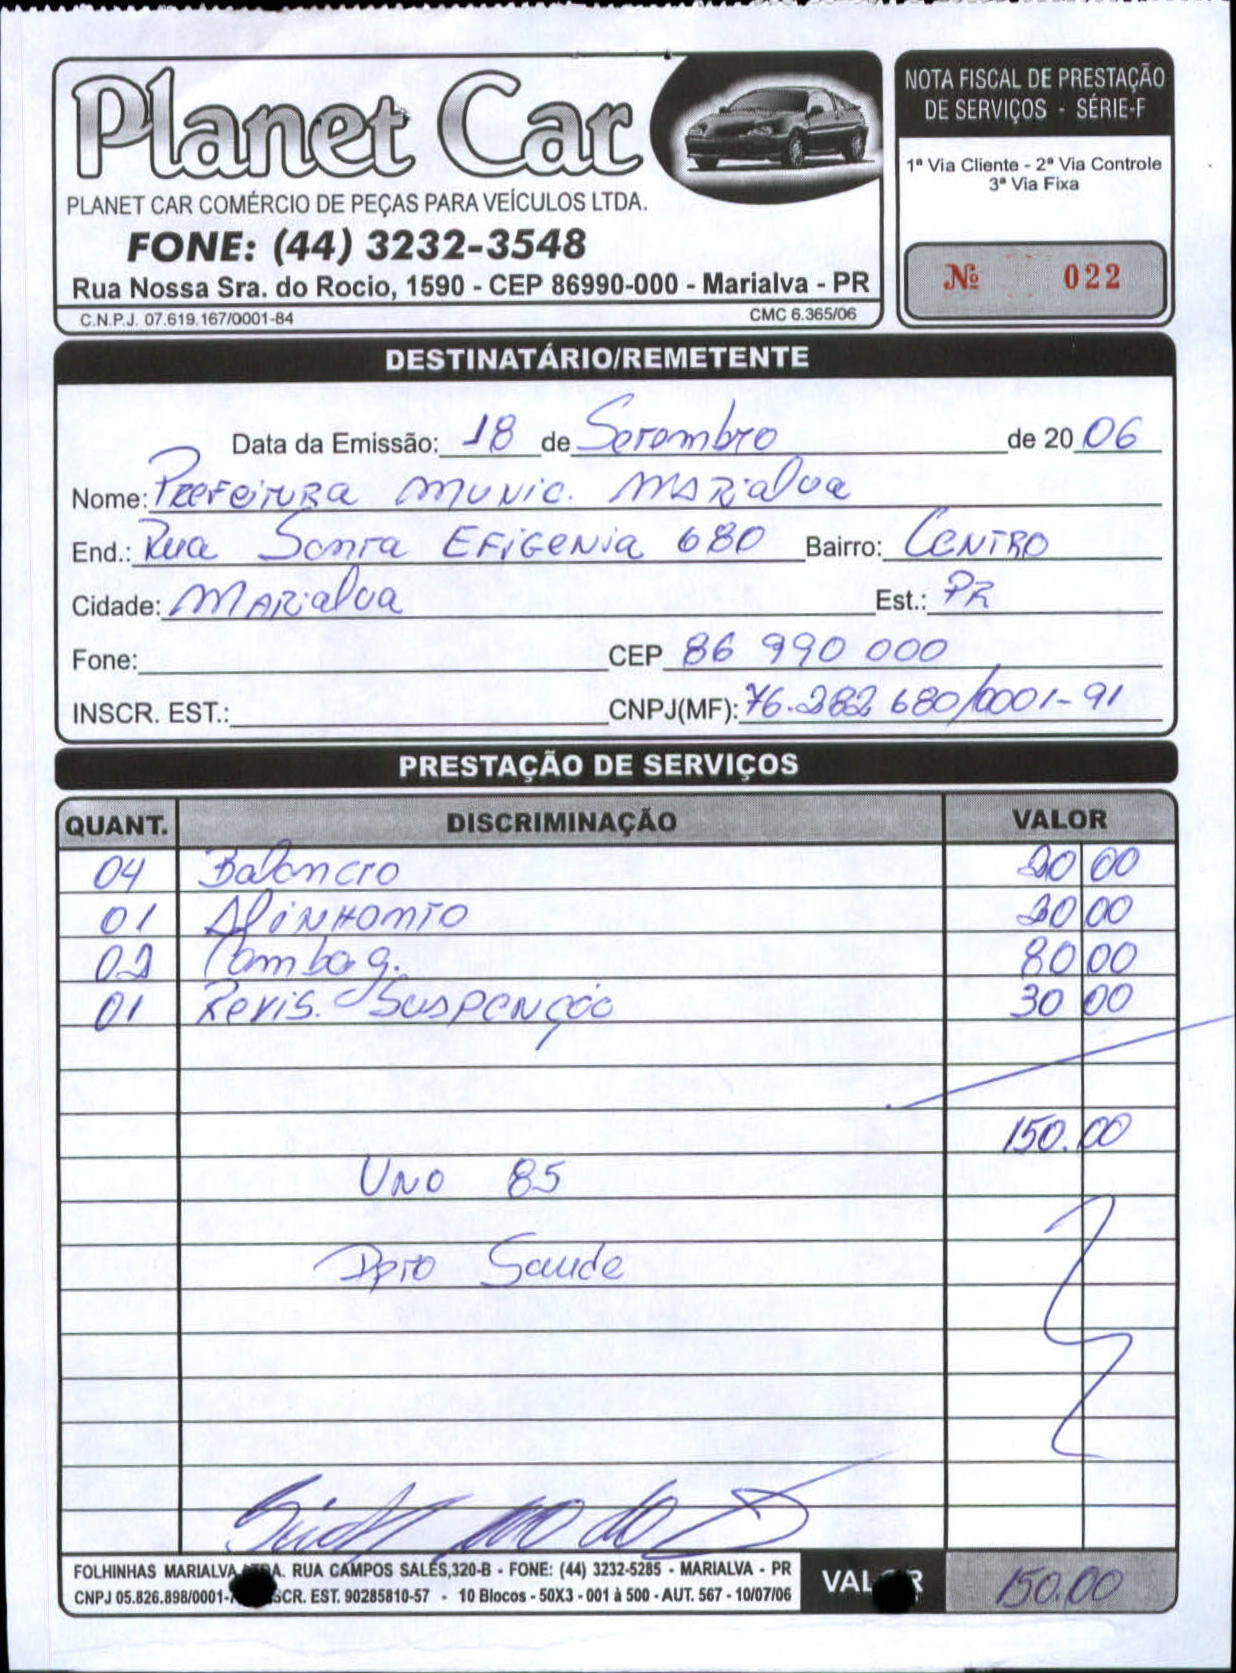 Planet Car
PLANET CAR COMÉRCIO DE PEÇAS PARA VEÍCULOS LTDA.
FONE: (44) 3232-3548
Rua Nossa Sra. do Rocio, 1590 - CEP 86990-000 - Marialva - PR
C.N.P.J. 07.619.167/0001-84 CMC 6.365/06
NOTA FISCAL DE PRESTAÇÃO
DE SERVIÇOS - SÉRIE-F
1ª Via Cliente - 2ª Via Controle
3ª Via Fixa
Nº 022
DESTINATÁRIO/REMETENTE
Data da Emissão: 18 de Setembro de 20 06
Nome: Prefeitura Munic. Marialva
End.: Rua Santa Efigenia 680 Bairro: Centro
Cidade: Marialva Est.: PR
Fone: CEP 86 990 000
INSCR. EST.: CNPJ(MF): 76.282 680/0001-91
PRESTAÇÃO DE SERVIÇOS
QUANT. DISCRIMINAÇÃO VALOR
04 Balancro 20 00
01 Alinhamto 20 00
02 Cambag. 80 00
01 Revis. Suspenção 30 00
150.00
Uno 85
Dpto Saude
FOLHINHAS MARIALVA LTDA. RUA CAMPOS SALES,320-B - FONE: (44) 3232-5285 - MARIALVA - PR
CNPJ 05.826.898/0001- INSCR. EST. 90285810-57 - 10 Blocos - 50X3 - 001 à 500 - AUT. 567 - 10/07/06
VALOR 150.00